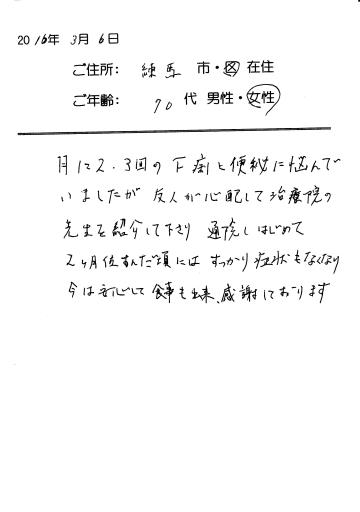 2016年 3月 6日
ご住所: 練馬 市・区 在住
ご年齢: 70 代 男性・女性
月に2.3回の下痢と便秘に悩んで
いましたが 友人が心配して治療院の
先生を紹介して下さり 通院しはじめて
2ヶ月位すんだ頃には すっかり症状もなくなり
今は安心して食事も出来、感謝しております